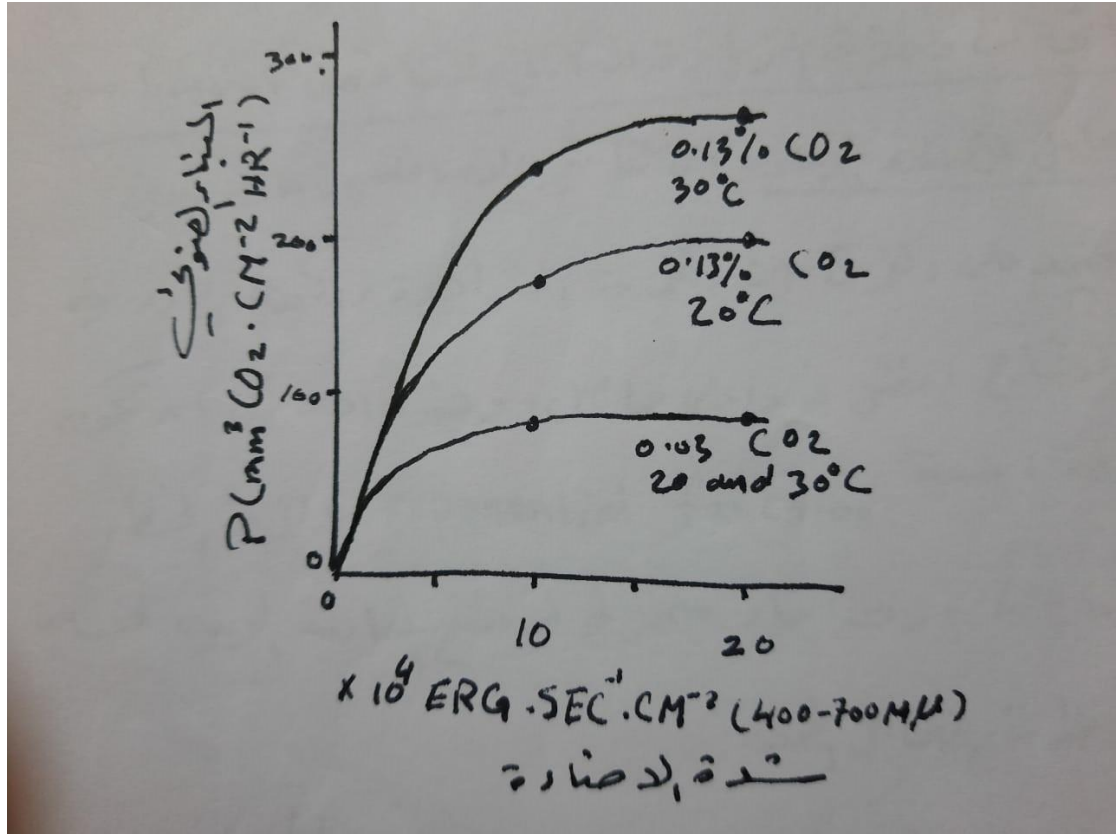 300
البناء الضوئي
P (mm³ CO₂ . CM⁻² HR⁻¹)
200
100
0
0.13% CO₂
30°C
0.13% CO₂
20°C
0.03 CO₂
20 and 30°C
0
10
20
× 10⁴ ERG . SEC⁻¹ . CM⁻² (400-700 Mμ)
شدة الاضاءة